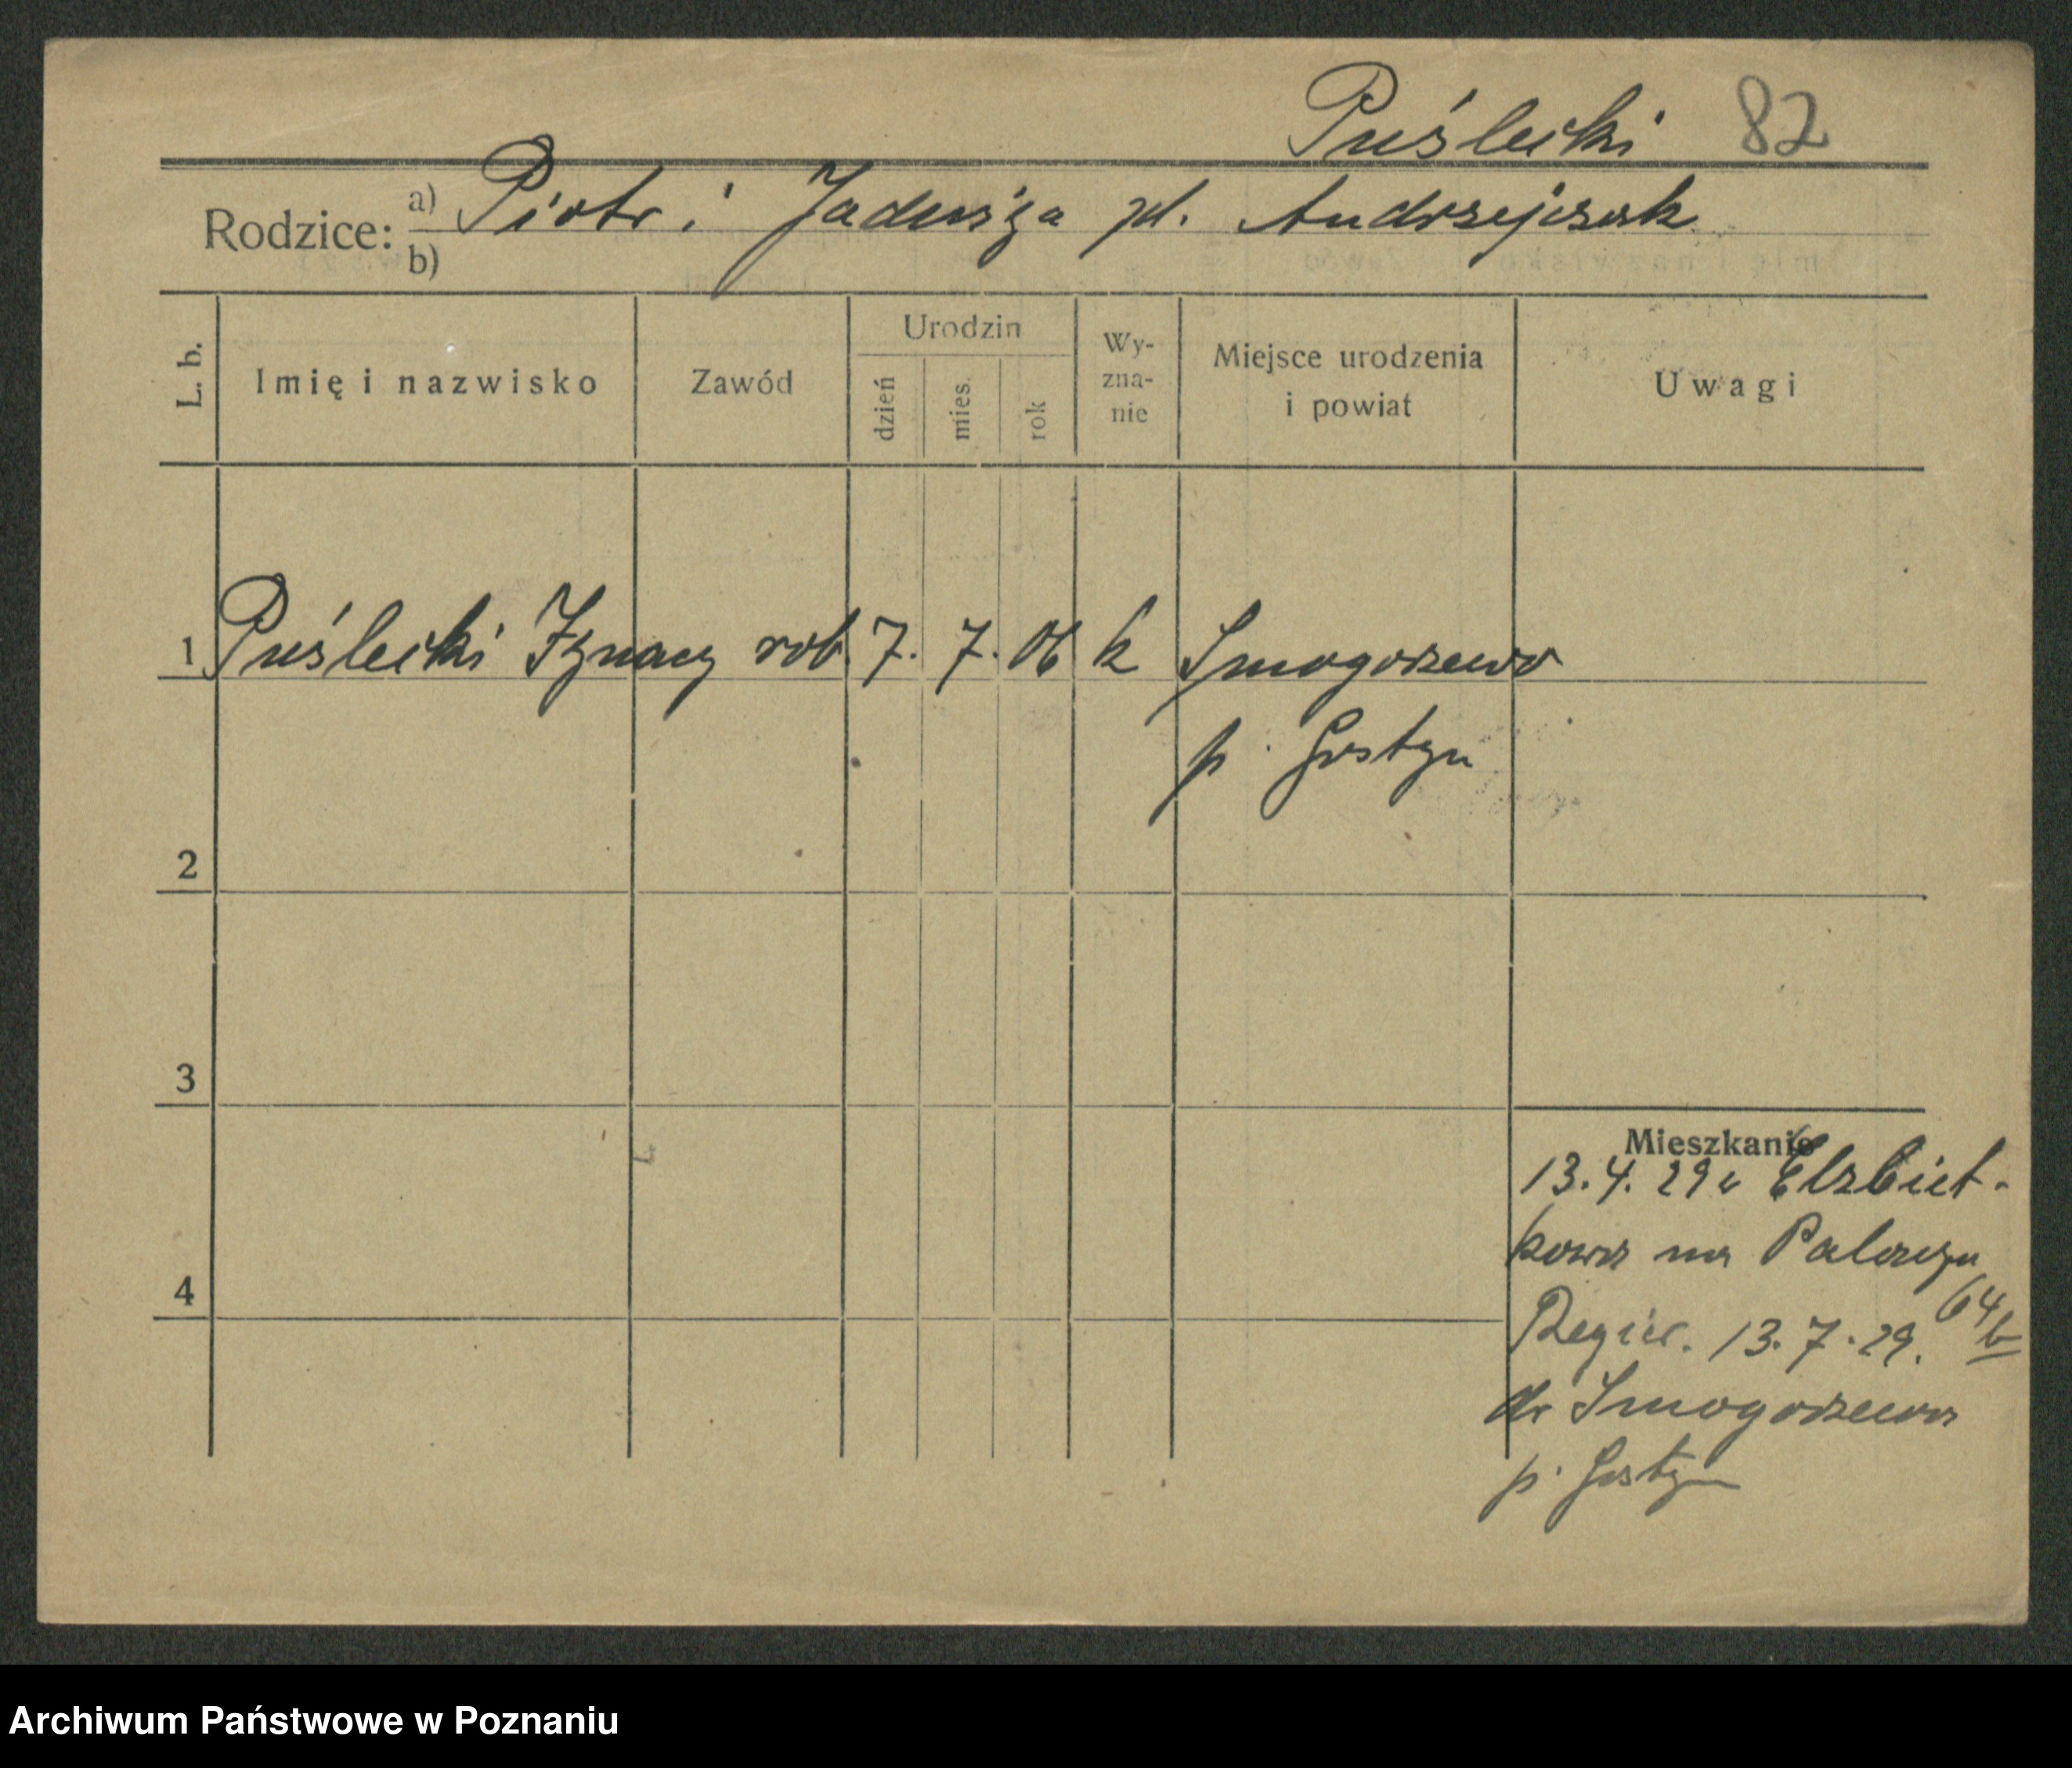 Puślecki 82
Rodzice: a) Piotr i Jadwiga zd. Andrzejczak
b)
L. b.
Imię i nazwisko
Zawód
Urodzin
dzień
mies.
rok
Wy-
zna-
nie
Miejsce urodzenia
i powiat
Uwagi
1 Puślecki Ignacy rob. 7. 7. 06 k Smogorzewo
p. Gostyn
2
3
4
Mieszkanie
13.4.29 z Elzbiet-
kowa na
64b
13.7.29.
do Smogorzewa
p. Gostyn
Archiwum Państwowe w Poznaniu